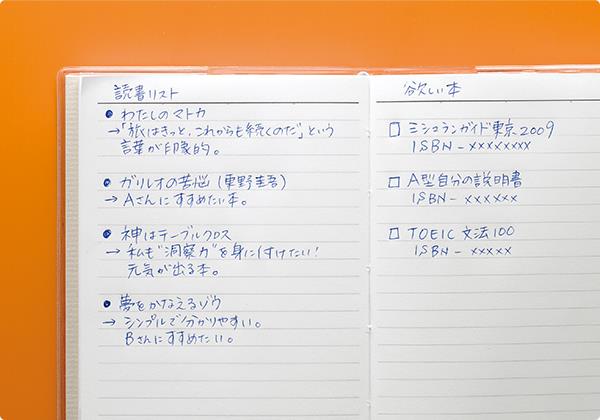 読書リスト
● わたしのマトカ
→「旅はきっと、これからも続くのだ」という
言葉が印象的。
● ガリレオの苦悩(東野圭吾)
→ Aさんにすすめたい本。
● 神はテーブルクロス
→ 私も"洞察力"を身につけたい!
元気が出る本。
● 夢をかなえるゾウ
→ シンプルで分かりやすい。
Bさんにすすめたい。
欲しい本
□ ミシュランガイド東京2009
ISBN-××××××××
□ A型自分の説明書
ISBN-××××××
□ TOEIC 文法100
ISBN-×××××